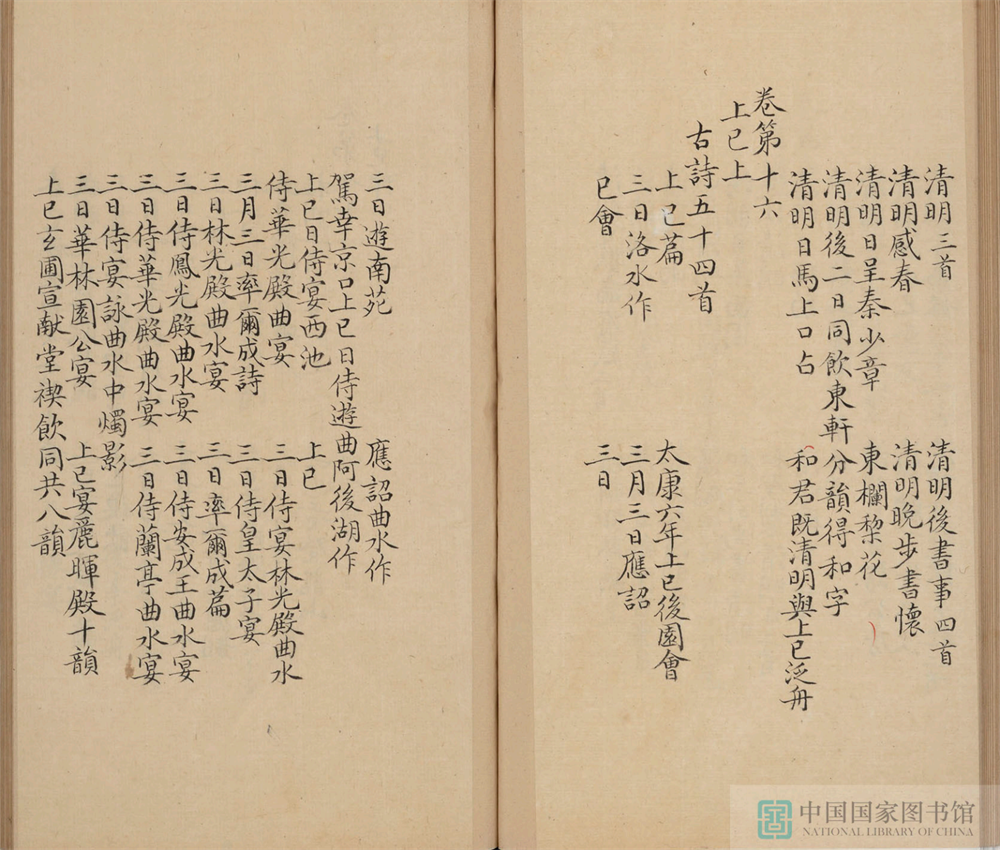 清明三首　清明後書事四首
清明感春　清明晚步書懷
清明日呈秦少章　東欄棃花
清明後二日同飲東軒分韻得和字
清明日馬上口占　和君既清明與上巳泛舟
卷第十六
上巳上
古詩五十四首
上巳篇　太康六年上巳後園會
三日洛水作　三月三日應詔
巳會　三日
三日遊南苑　應詔曲水作
駕幸京口上巳日侍遊曲阿後湖作
上巳日侍宴西池　上巳
侍華光殿曲宴　三日侍宴林光殿曲水
三月三日率爾成詩　三日侍皇太子宴
三日林光殿曲水宴　三日率爾成篇
三日侍鳳光殿曲水宴　三日侍安成王曲水宴
三日侍華光殿曲水宴　三日侍蘭亭曲水宴
三日侍宴詠曲水中燭影
三日華林園公宴　上巳宴麗暉殿十韻
上巳玄圃宣猷堂禊飲同共八韻
中国国家图书馆
NATIONAL LIBRARY OF CHINA